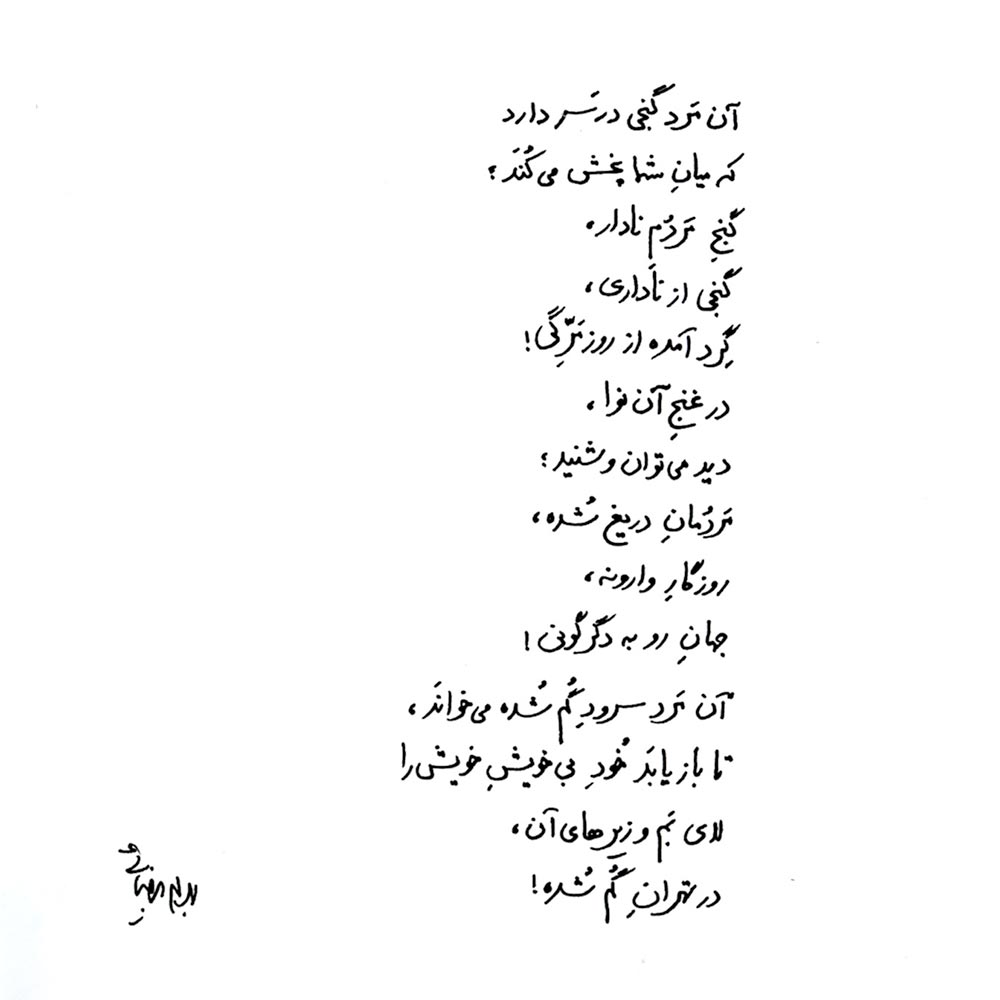 آن مَرد گنجی در سَر دارد
که میانِ شما پخش می‌کُنَد؛
گنجِ مَردُم نادار.
گنجی از ناداری،
گِرد آمده از روزمَرّگی!
در غنجِ آن نوا،
دید می‌توان و شنید؛
مَردُمانِ دریغ شُده،
روزگارِ وارونه،
جهانِ رو به دگرگونی!
آن مَرد سرودِ گُم شُده می‌خوانَد،
تا باز یابَد خُودِ بی‌خویشِ خویش را
لای بَم و زیرهای آن،
در تهرانِ گُم شُده!
بهرام بیضائی